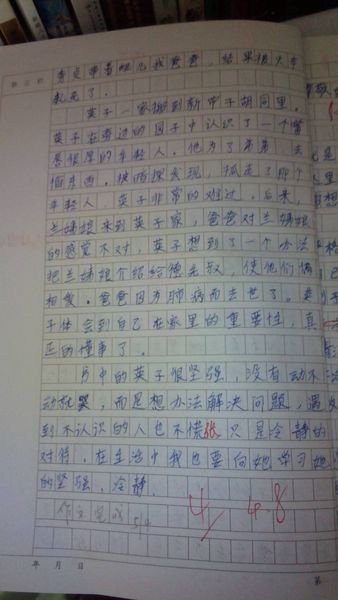 秀贞带着妞儿找爸爸，结果被火车
轧死了。
英子一家搬到新帘子胡同里。
英子在旁边的园子中认识了一个嘴
唇很厚的年轻人。他为了弟弟，去
偷东西。被暗探发现，抓走了那个
年轻人，英子非常的难过。后来，
兰姨娘来到英子家，爸爸对兰姨娘
的感觉不对，英子想到了一个办法
把兰姨娘介绍给德先叔，使他们俩
相爱。爸爸因为肺病而去世了。英
子体会到自己在家里的重要性，真
正的懂事了。
书中的英子很坚强，没有动不
动就哭，而是想办法解决问题，遇
到不认识的人也不慌张只是冷静的
对待。在生活中我也要向她学习她
的坚强、冷静。
作文完成 5/4
4/ 4.8
年 月 日
第